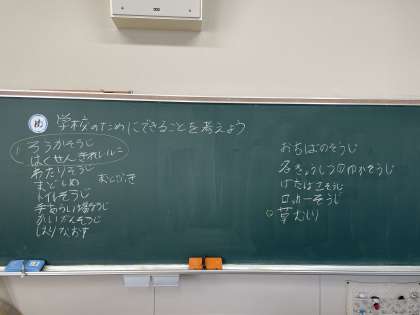 め 学校のためにできることを考えよう
ろうかそうじ
はくせんきれいに
わたりそうじ
まどしめ まどふき
トイレそうじ
手あらい場そうじ
かいだんそうじ
はりなおす
おちばのそうじ
各きょうしつのゆかそうじ
げたばこそうじ
ロッカーそうじ
草むしり